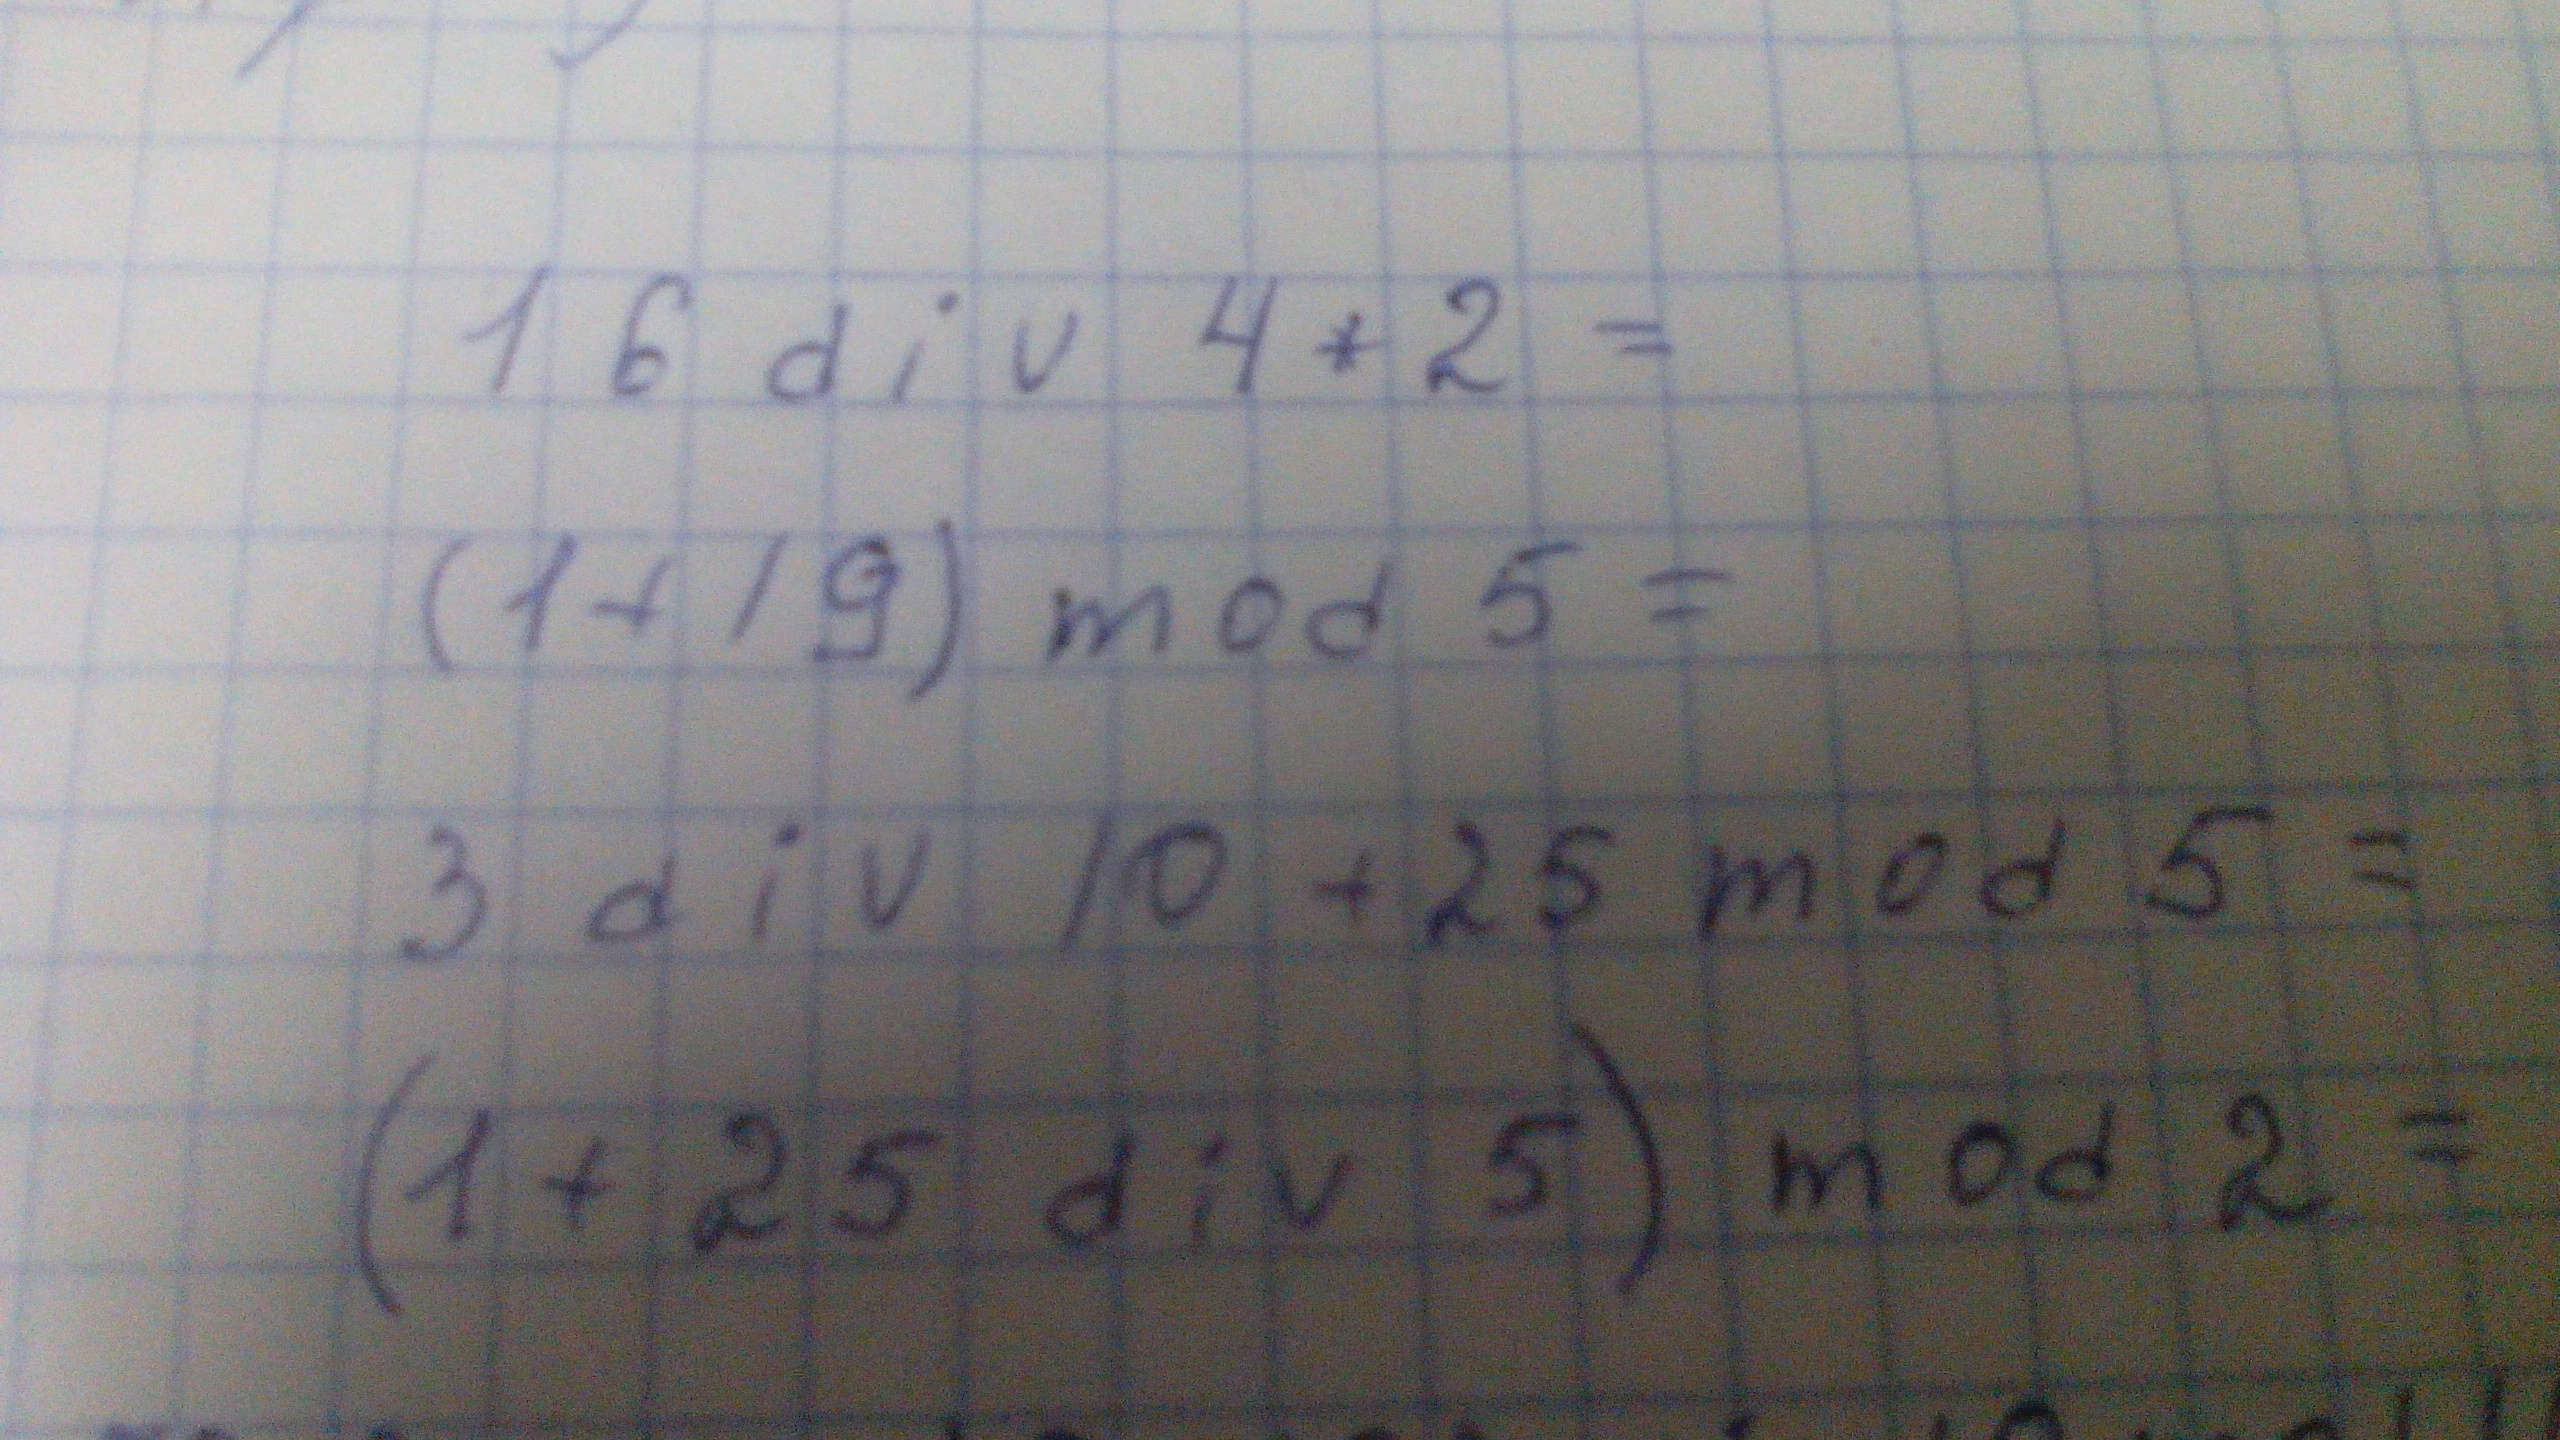 16 div 4*2=
(1+19) mod 5=
3 div 10+25 mod 5=
(1+25 div 5) mod 2=